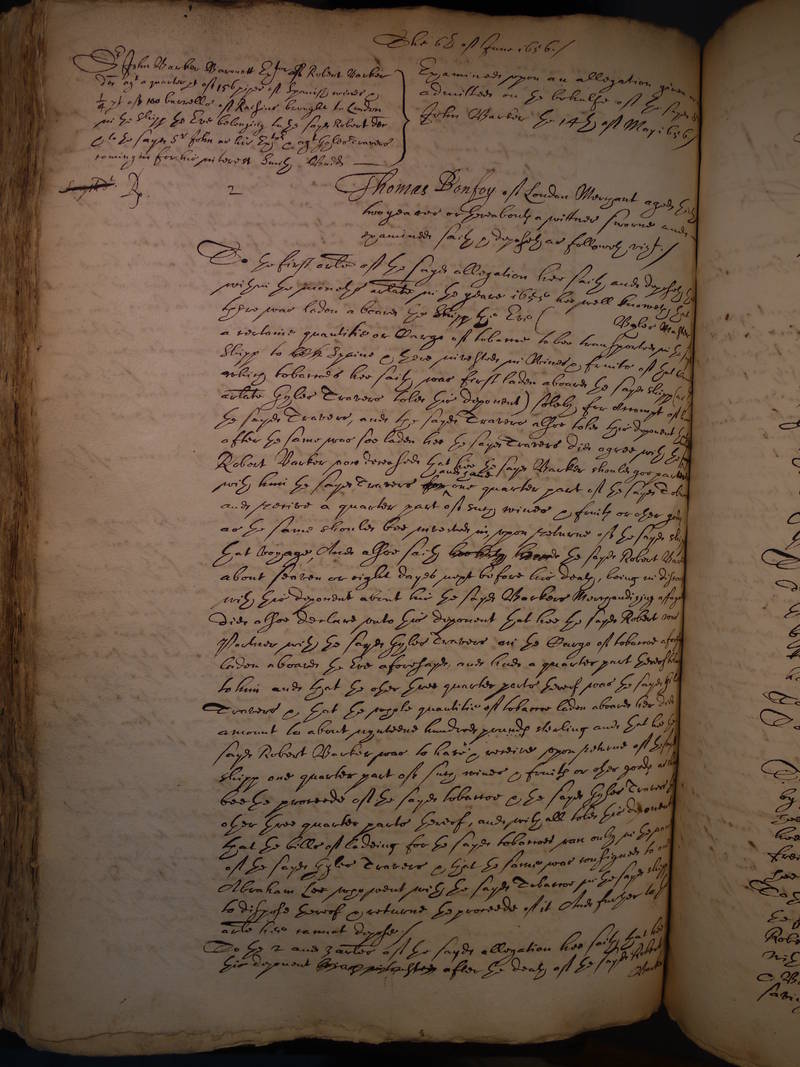 The 6th of June 1656./
Sr John Barker Baronett Exror of Robert Barker
decd agt a quarter pt of 156 pipes of Spanish wines &
1/4 pt of 100 barrells of Raysins brought to London
in the Shipp the Eve belonging to the sayd Robert decd
& to the sayd Sr John as his Exror & agt Gyles Travers
coming in for his interest Suckley Budd
Examined upon an allegation given and
admitted on the behalfe of the sayd Sr
John Barker the 14th of May 1656
2
Thomas Bonfoy of London Merchant aged
two yeares or thereabouts a wittnes sworne and
examined saith & deposeth as followeth vizt./
To the first arle of the sayd allegation hee saith and deposeth
within the moneths arlate in the yeare 1655 hee well knoweth that
there was laden aboard the Shipp the Eve (
a certaine quantitie or Cargo of tobaccoe to bee transported in the
Shipp to Spaine & there invested in Wines & fruits of that
which tobaccoes hee saith was first laden aboard the sayd shipp (as the
arlate Gyles Travers told this deponent) solely for accompt of
the sayd Travers, and the sayd Travers alsoe told this deponent that
after the same was soe laden hee the sayd Travers did agree with the sayd
Robert Barker now deceased that hee the sayd Barker should goe partner
with him the sayd Travers and have one quarter part of the sayd Tobaccoe
and receive a quarter part of such wines & fruits or other goods
as the same should bee invested in upon returne of the sayd shipp
that voyage, And alsoe saith the sayd Robert Barker
about seaven or eight dayes next before his death, being in discourse
with this deponent about his the sayd Barkers Merchandizing affayres
did alsoe declare unto this deponent that hee the sayd Robert was
Partner with the sayd Gyles Travers in the Cargo of tobaccoe aforesayd
laden aboard the Eve aforesayd, and had a quarter part thereof
to him and that the other three quarter parts thereof was the sayd Gyles
Travers & that the whole quantitie of tobaccoe laden aboard her did
amount to about eighteene hundred pounds sterling and that hee the
sayd Robert Barker was to have & receive upon returne of the sayd
shipp one quarter part of such wines & fruits or other goods as should
bee the proceede of the sayd tobaccoe & the sayd Gyles Travers the
other three quarter parts thereof, and withall told this deponent
that the bills of ladeing for the sayd tobaccoes ran only in the name
of the sayd Gyles Travers & that the same was consigned to one
Abraham Lee whoe went with the sayd Tobaccoe in the sayd shipp
to dispose thereof & returne the proceede of it And further to this
arle hee cannot depose./
To the 2 and 3 arles of the sayd allegation hee saith that hee
this deponent after the death of the sayd Robert
Barker